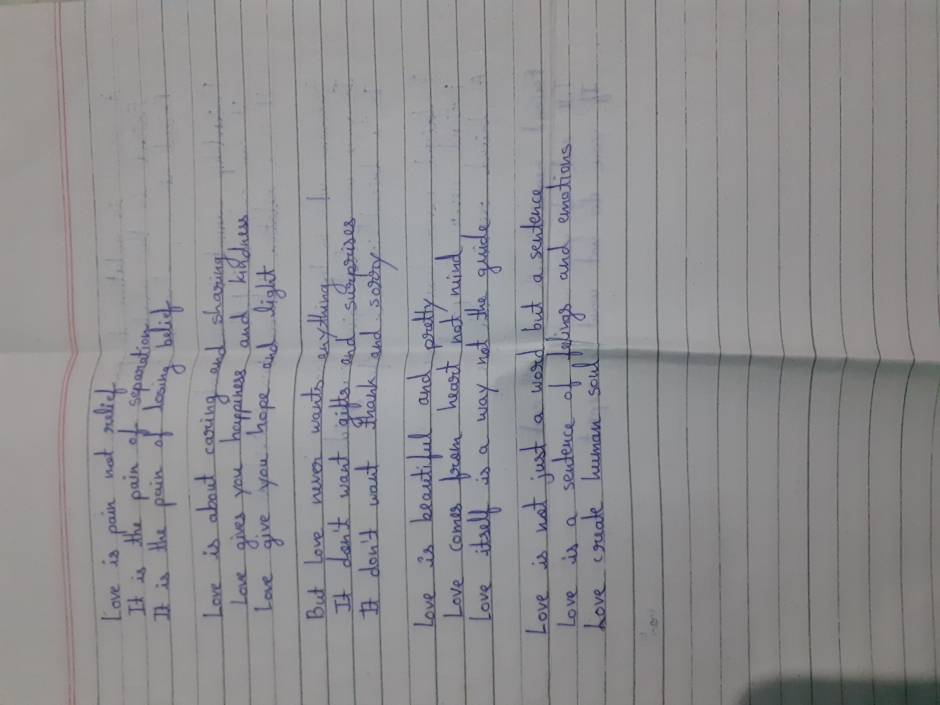 Love is pain not relief
It is the pain of separation
It is the pain of losing belief
Love is about caring and sharing
Love gives you happiness and kindness
Love give you hope and light
But Love never wants anything
It don't want gifts and surprises
It don't want thank and sorry
Love is beautiful and pretty
Love comes from heart not mind
Love itself is a way not the guide
Love is not just a word but a sentence
Love is a sentence of felings and emotions
Love create human soul